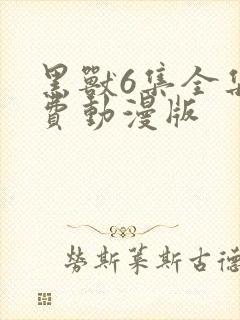 黑獸6集全集
費動漫版
勞斯萊斯古德